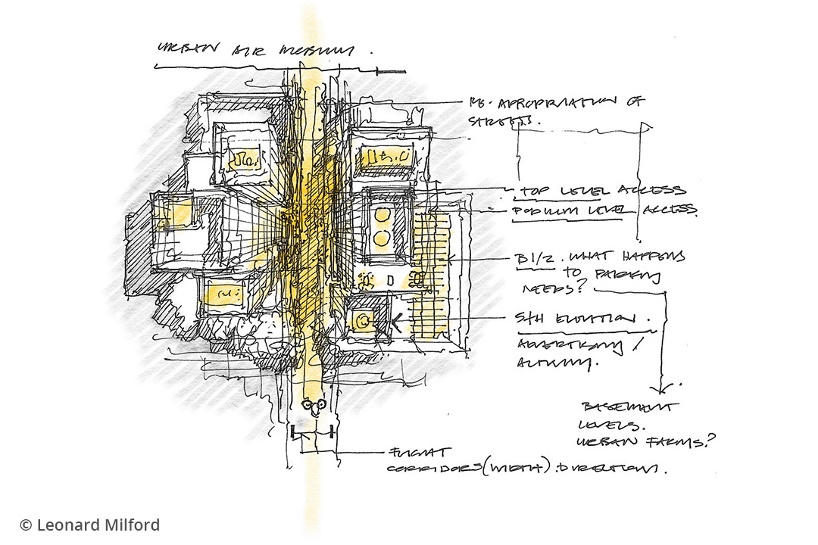 URBAN AIR MOBILITY.
RE-APROPRIATION OF
STREETS.
TOP LEVEL ACCESS
PODIUM LEVEL ACCESS.
B1/2. WHAT HAPPENS
TO PARKING
NEEDS?
5TH ELEVATION.
ADVERTISING /
BASEMENT
LEVELS.
URBAN FARMS?
FLIGHT
CORRIDORS (WIDTH). DIRECTIONS.
© Leonard Milford